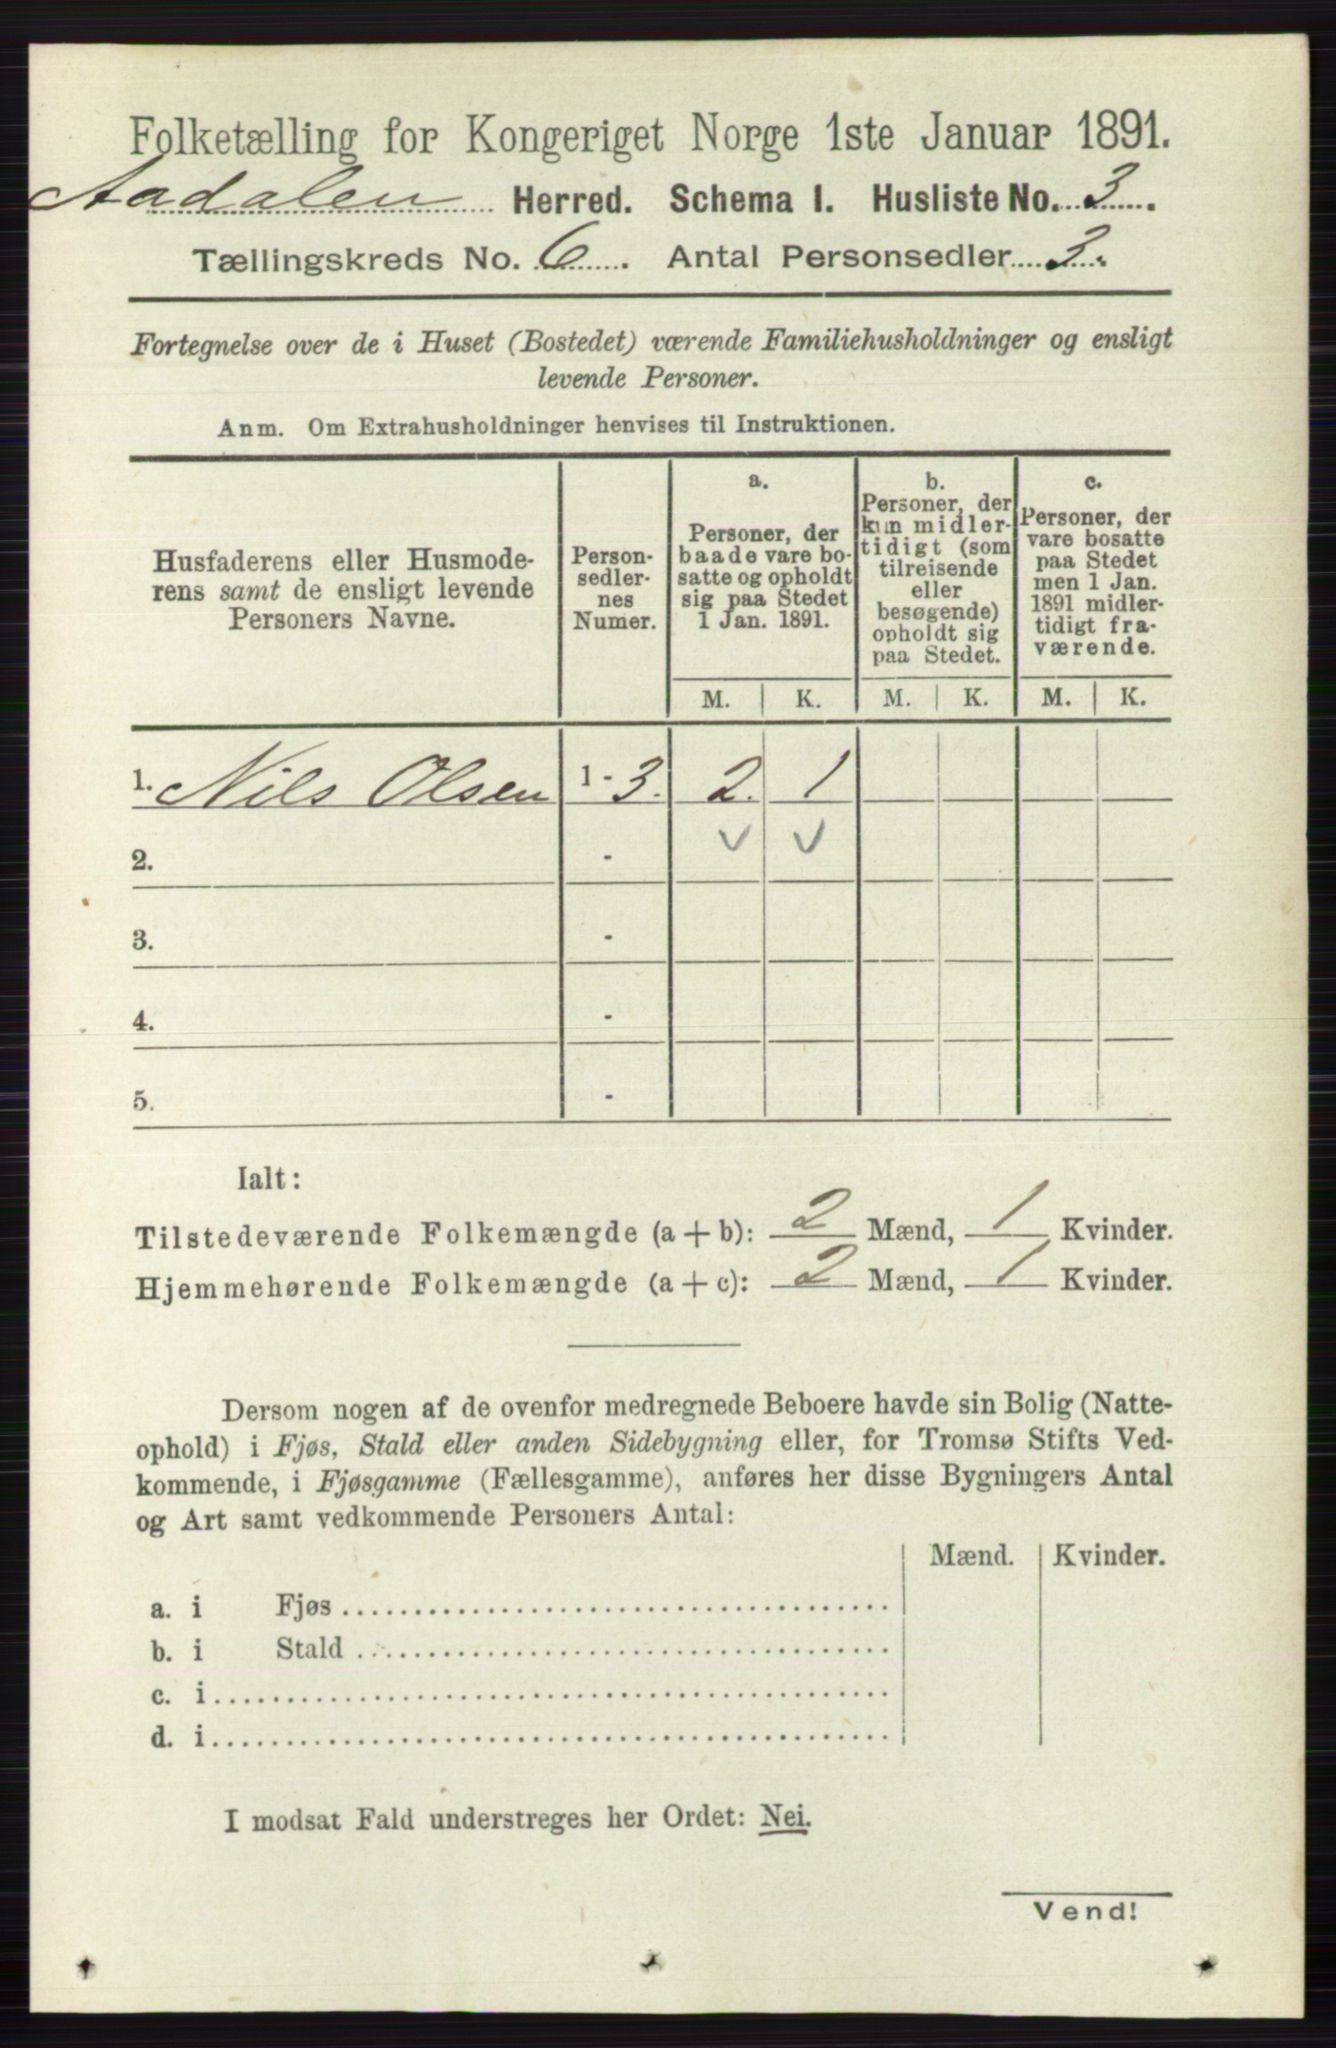 Folketælling for Kongeriget Norge 1ste Januar 1891.
Aadalen Herred. Schema I. Husliste No. 3.
Tællingskreds No. 6. Antal Personsedler 3.
Fortegnelse over de i Huset (Bostedet) værende Familiehusholdninger og ensligt
levende Personer.
Anm. Om Extrahusholdninger henvises til Instruktionen.
Husfaderens eller Husmode-
rens samt de ensligt levende
Personers Navne.
Person-
sedler-
nes
Numer.
a.
Personer, der
baade vare bo-
satte og opholdt
sig paa Stedet
1 Jan. 1891.
b.
Personer, der
kun midler-
tidigt (som
tilreisende
eller
besøgende)
opholdt sig
paa Stedet.
c.
Personer, der
vare bosatte
paa Stedet
men 1 Jan.
1891 midler-
tidigt fra-
værende.
M. K. M. K. M. K.
1. Nils Olsen 1 - 3. 2. 1
2. - v v
3. -
4. -
5. -
Ialt:
Tilstedeværende Folkemængde (a + b): 2 Mænd, 1 Kvinder.
Hjemmehørende Folkemængde (a + c): 2 Mænd, 1 Kvinder.
Dersom nogen af de ovenfor medregnede Beboere havde sin Bolig (Natte-
ophold) i Fjøs, Stald eller anden Sidebygning eller, for Tromsø Stifts Ved-
kommende, i Fjøsgamme (Fællesgamme), anføres her disse Bygningers Antal
og Art samt vedkommende Personers Antal:
Mænd. Kvinder.
a. i Fjøs
b. i Stald
c. i
d. i
I modsat Fald understreges her Ordet: Nei.
Vend!